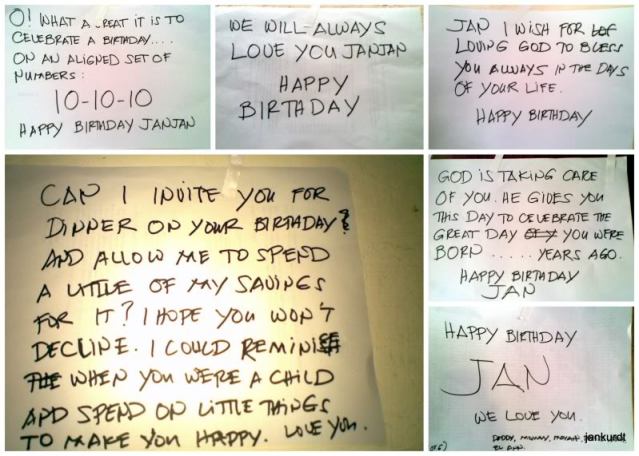 O! WHAT A REAT IT IS TO
CELEBRATE A BIRTHDAY....
ON AN ALIGNED SET OF
NUMBERS:
10-10-10
HAPPY BIRTHDAY JANJAN
WE WILL ALWAYS
LOVE YOU JANJAN
HAPPY
BIRTHDAY
JAN I WISH FOR
LOVING GOD TO BLESS
YOU ALWAYS IN THE DAYS
OF YOUR LIFE.
HAPPY BIRTHDAY
CAN I INVITE YOU FOR
DINNER ON YOUR BIRTHDAY?
AND ALLOW ME TO SPEND
A LITTLE OF MY SAVINGS
FOR IT? I HOPE YOU WON'T
DECLINE. I COULD REMINISE
THE WHEN YOU WERE A CHILD
AND SPEND ON LITTLE THINGS
TO MAKE YOU HAPPY. LOVE YOU.
GOD IS TAKING CARE
OF YOU. HE GIVES YOU
THIS DAY TO CELEBRATE THE
GREAT DAY YOU WERE
BORN ..... YEARS AGO.
HAPPY BIRTHDAY
JAN
HAPPY BIRTHDAY
JAN
WE LOVE YOU.
DADDY, MUMMY,
jenkurdt